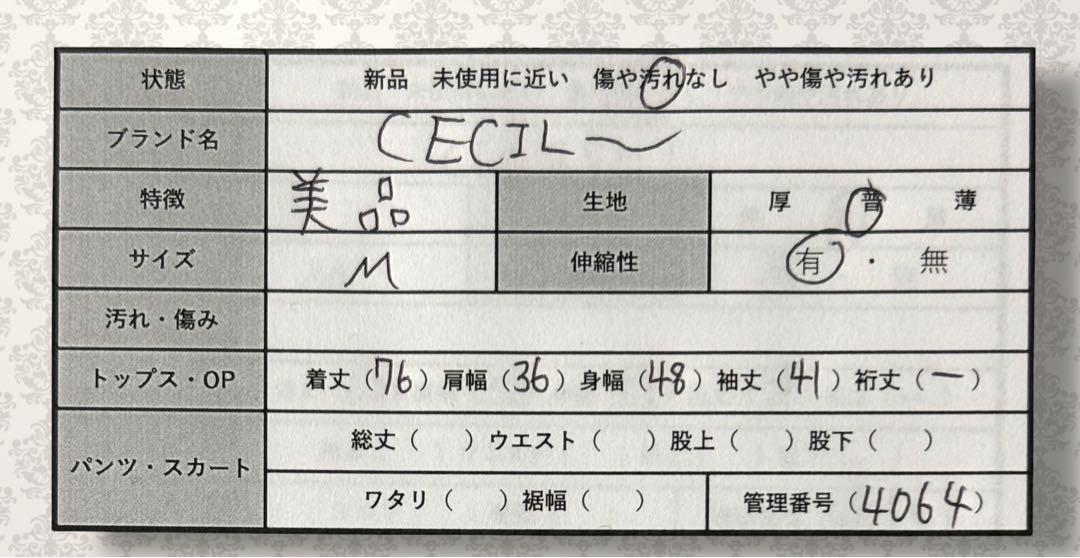 状態 新品 未使用に近い 傷や汚れなし やや傷や汚れあり
ブランド名 CECIL〜
特徴 美品 生地 厚 普 薄
サイズ M 伸縮性 有 ・ 無
汚れ・傷み
トップス・OP 着丈(76) 肩幅(36) 身幅(48) 袖丈(41) 裄丈(ー)
パンツ・スカート 総丈( ) ウエスト( ) 股上( ) 股下( )
ワタリ( ) 裾幅( ) 管理番号(4064)